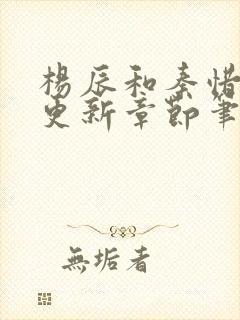 楊辰和秦惜
更新章節筆
無垢者